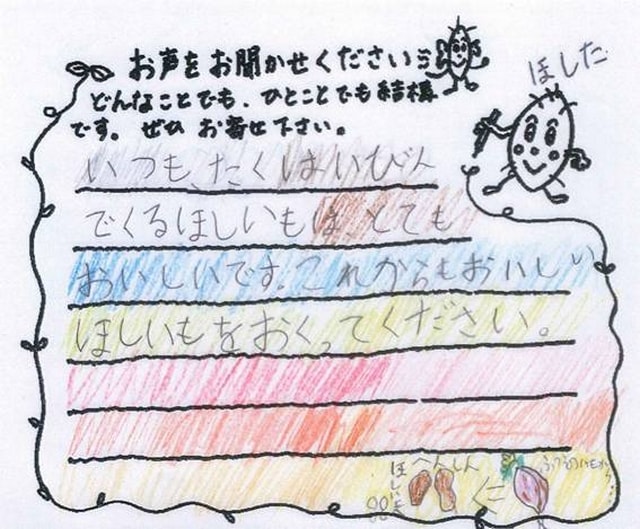 お声をお聞かせください
どんなことでも、ひとことでも結構
です。ぜひ お寄せ下さい。
ほした
いつも、たくはいびん
でくるほしいもは、とても
おいしいです。これからもおいしい
ほしいもをおくってください。
へんしん
ほしいも